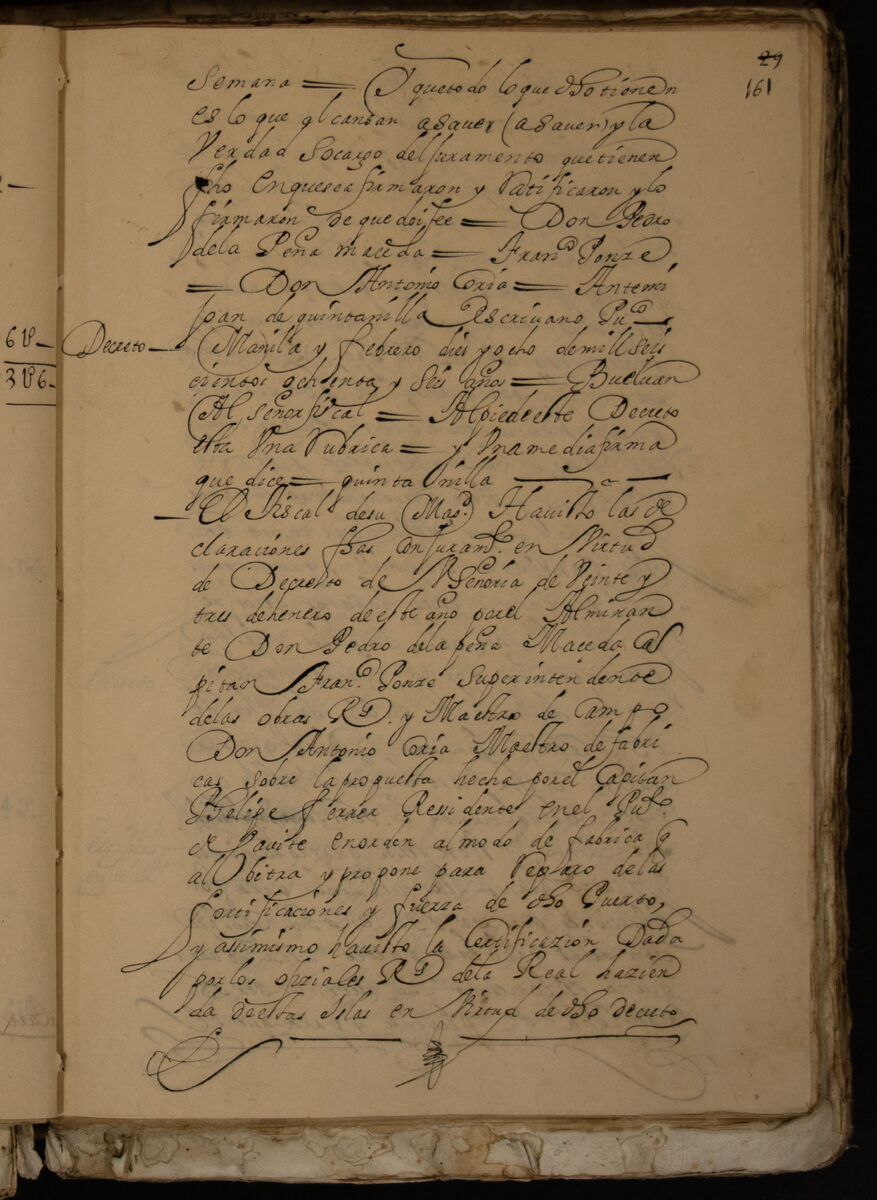 29
161
semana = Y que todo lo que dho tienen
es lo que alcansan a saver (a saver) y la
verdad so cargo del juramento que tienen
fho en que se afirmaron y ratificaron y lo
firmaron de que doi fee = Don Pedro
de la Peña maceda = Fran.co Ponze
= Don Antonio Coria = Antemi
Joan de quintanilla escrivano Pu.co
Decreto Manila y febrero dies y ocho de mill seis
cientos ochenta y seis años = Buelvan
Al señor fiscal = Al pie de este Decreto
esta Una rubrica = y Una media firma
que dice = quintanilla
El Fiscal de su Mag.d Ha visto las de
claraciones fhas con juram.to en Virtud
de Decreto de VSeñoria de Veinte y
tres de henero de este año por el Almiran
te Don Pedro de la peña Maceda Ca
pitan Fran.co Ponze superintendente
de las obras R.s y Maestro de Campo
Don Antonio Coria Maestro de fabri
cas sobre la propuesta hecha por el Capitan
Phelipe ferrer Ressidente en el Pu.to
de Cavite en orden al modo de fabrica q
alvitra y propone para reparo de las
fortificaciones y fuerza de dho Puerto,
y assimismo ha visto la Certificazion Dada
por los ofiziales R.s de la Real hazien
da de estas Islas en Virtud de dho decreto
6U
3U6